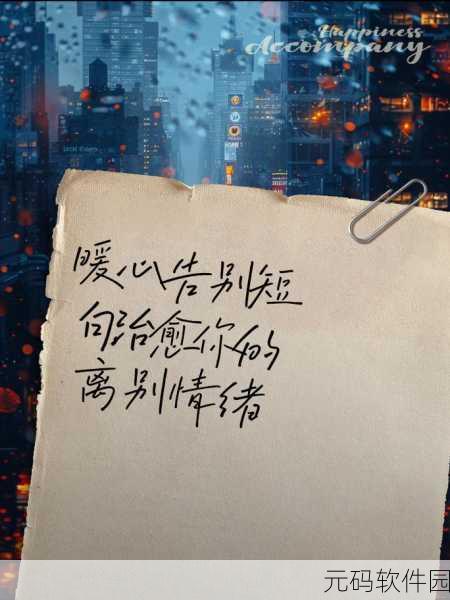 Happiness
Accompany
暖心告别短
句治愈你的
离别情绪
元码软件园